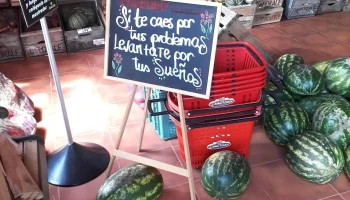 Si te caes por
tus problemas
Levantate por
tus Sueños